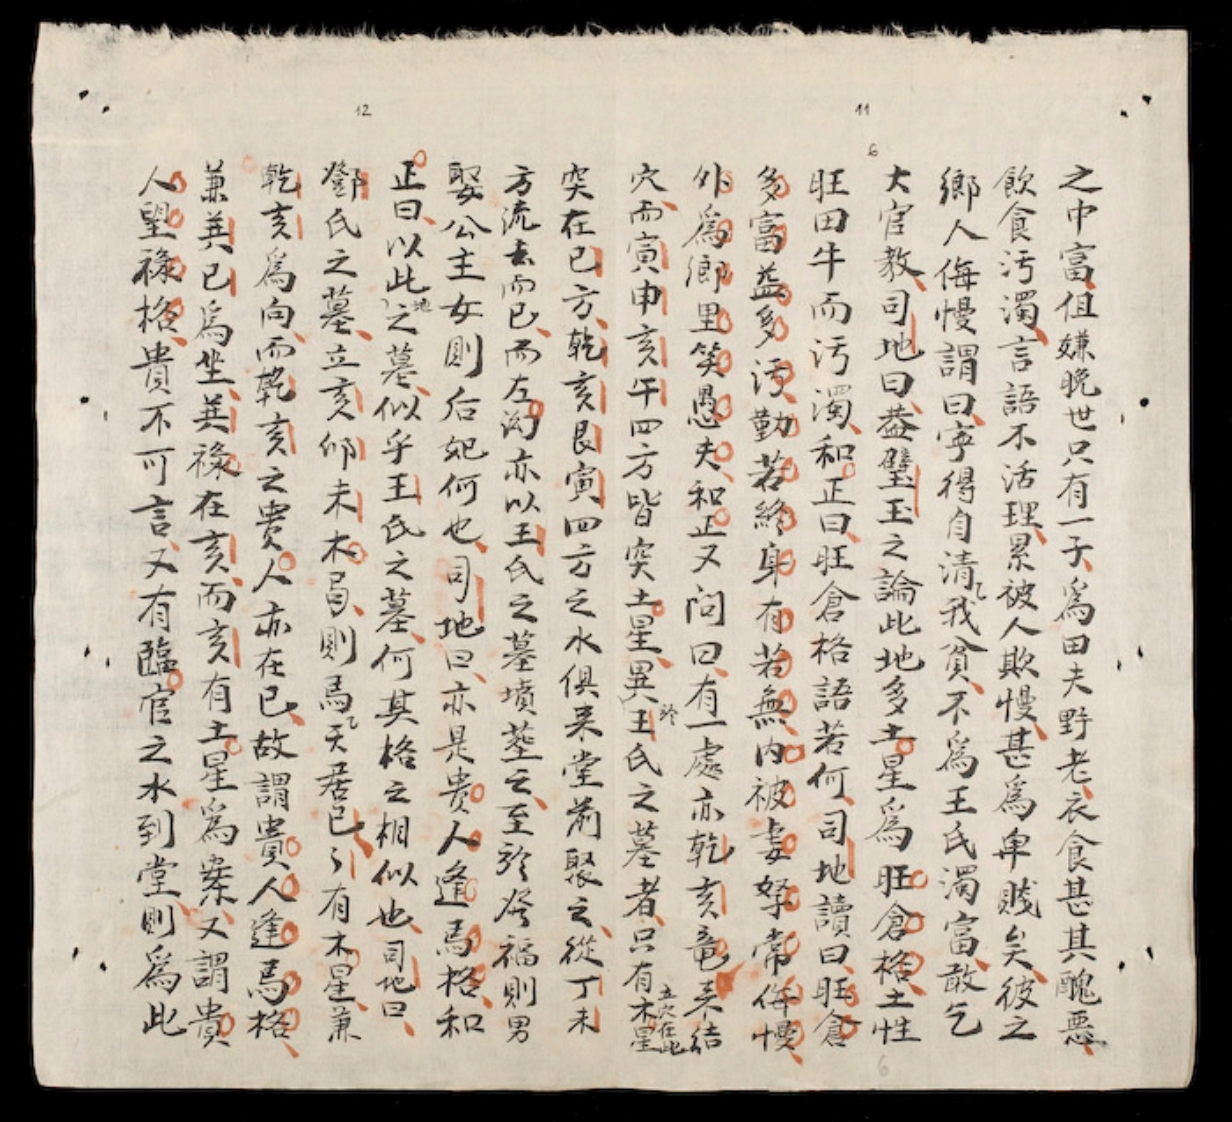 12
11
6
之中富但嫌晚世只有一子爲田夫野老衣食甚其醜惡
飲食污濁言語不活理累被人欺慢甚爲卑賤矣彼之
鄉人侮慢謂曰寕得自清我貧不爲王氏濁富敢乞
大官教司地曰益璧玉之論此地多土星爲旺倉格土性
旺田牛而污濁和正曰旺倉格語若何司地讀曰旺倉
多富益多污勤若終身有若無內被妻孥常侮慢
外爲鄉里笑愚夫和正又问曰有一處亦乾亥竜来結
穴而寅申亥午四方皆突土星異於王氏之墓者只有木星立穴在此
突在巳方乾亥艮寅四方之水俱来堂前聚之從丁未
方流去而已而左沟亦以王氏之墓墳塟之至於發福則男
娶公主女則后妃何也司地曰亦是贵人逢馬格和
正曰以此地之墓似乎王氏之墓何其格之相似也司地曰
鄧氏之墓立亥卯未木局則馬天居巳々有木星兼
乾亥爲向而乾亥之贵人亦在巳故謂貴人逢馬格
兼巽巳爲坐巽祿在亥而亥有土星爲案又謂貴
人望祿格貴不可言又有臨官之水到堂則爲此
6